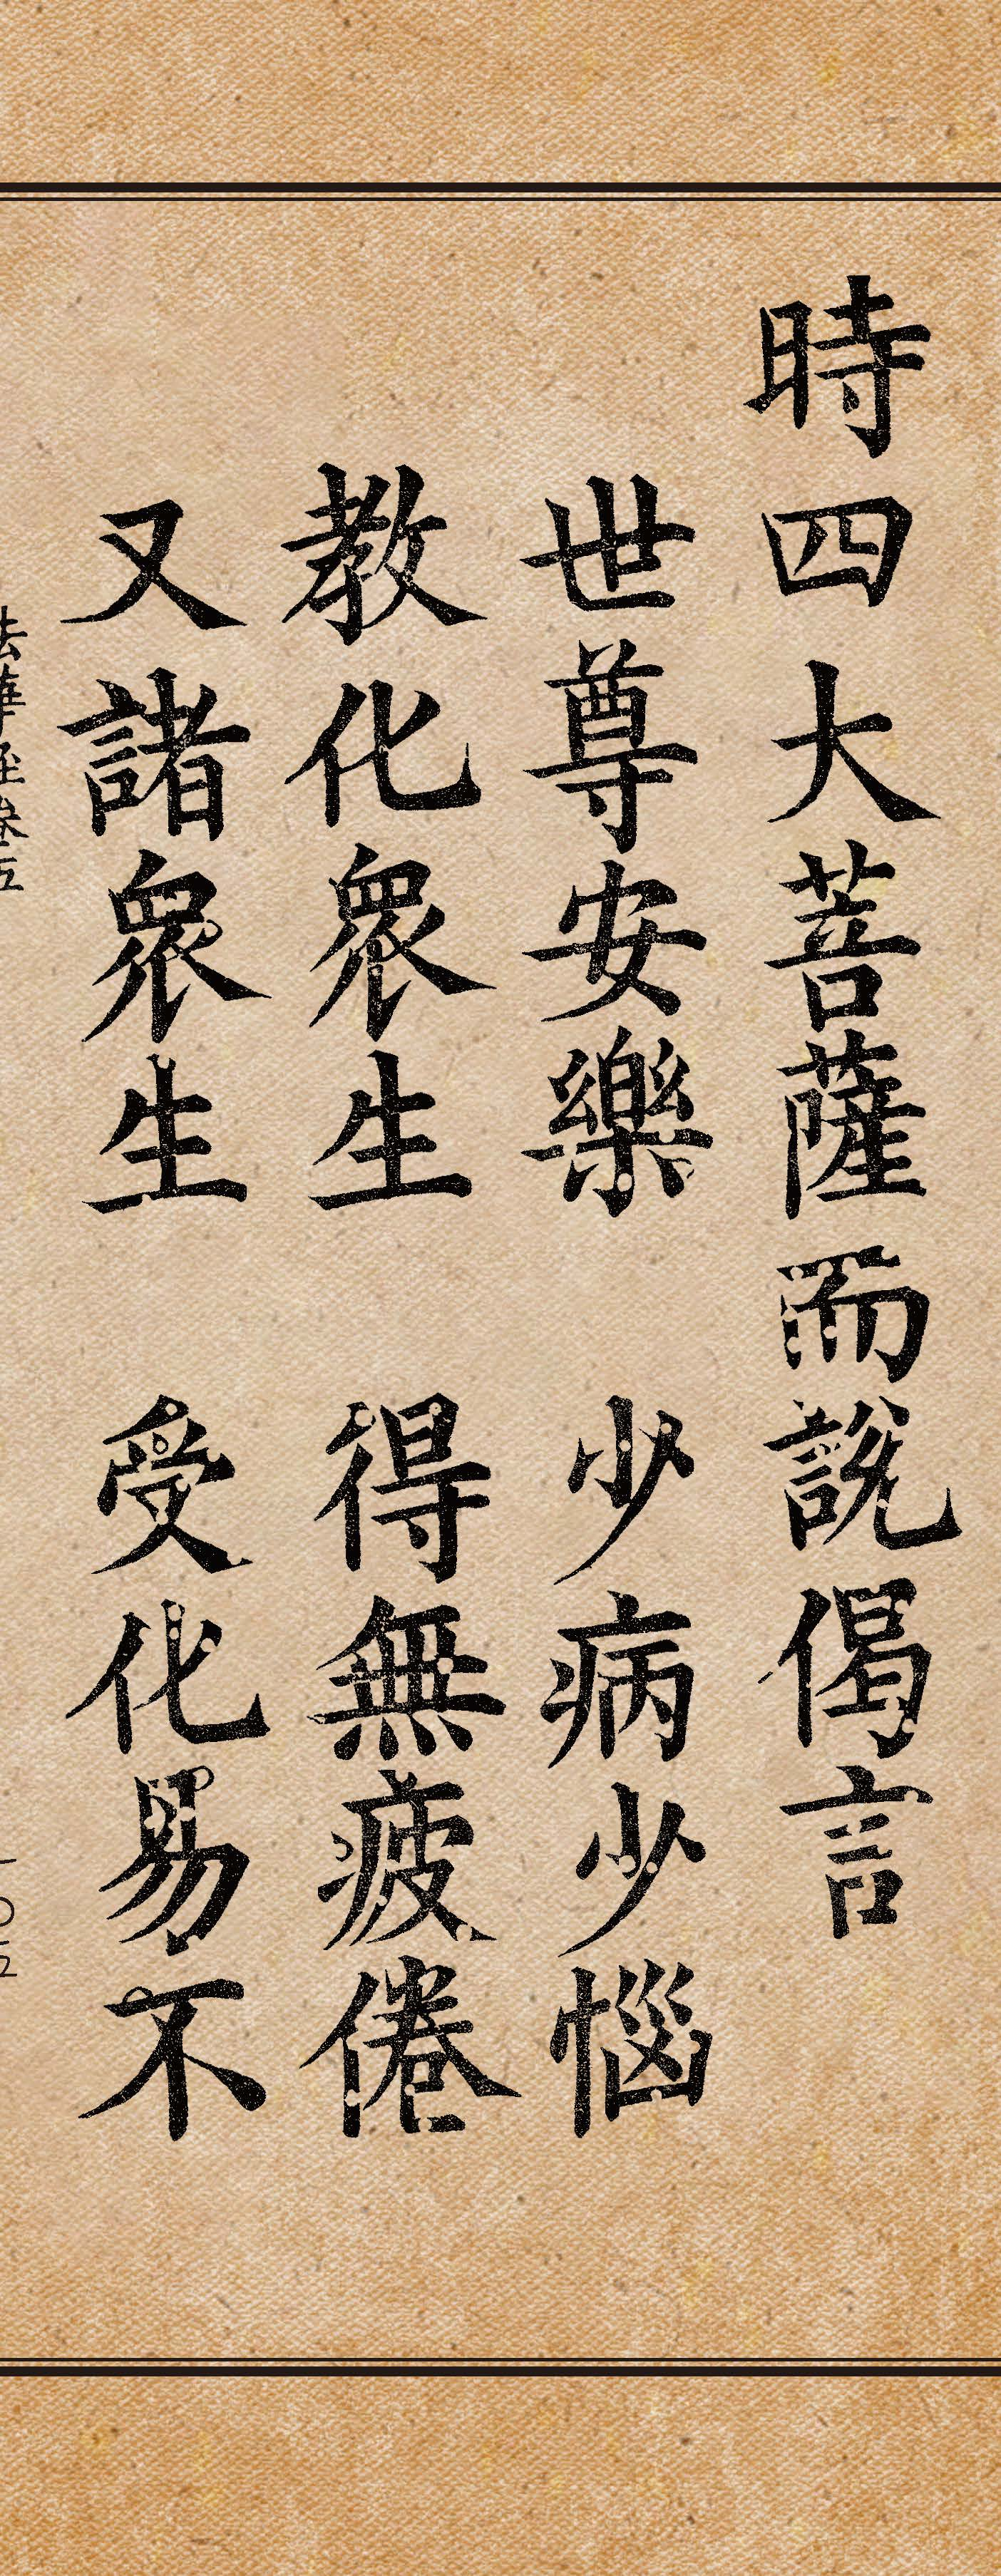 時四大菩薩而說偈言
世尊安樂　少病少惱
教化眾生　得無疲倦
又諸眾生　受化易不
法華經卷五
一〇五